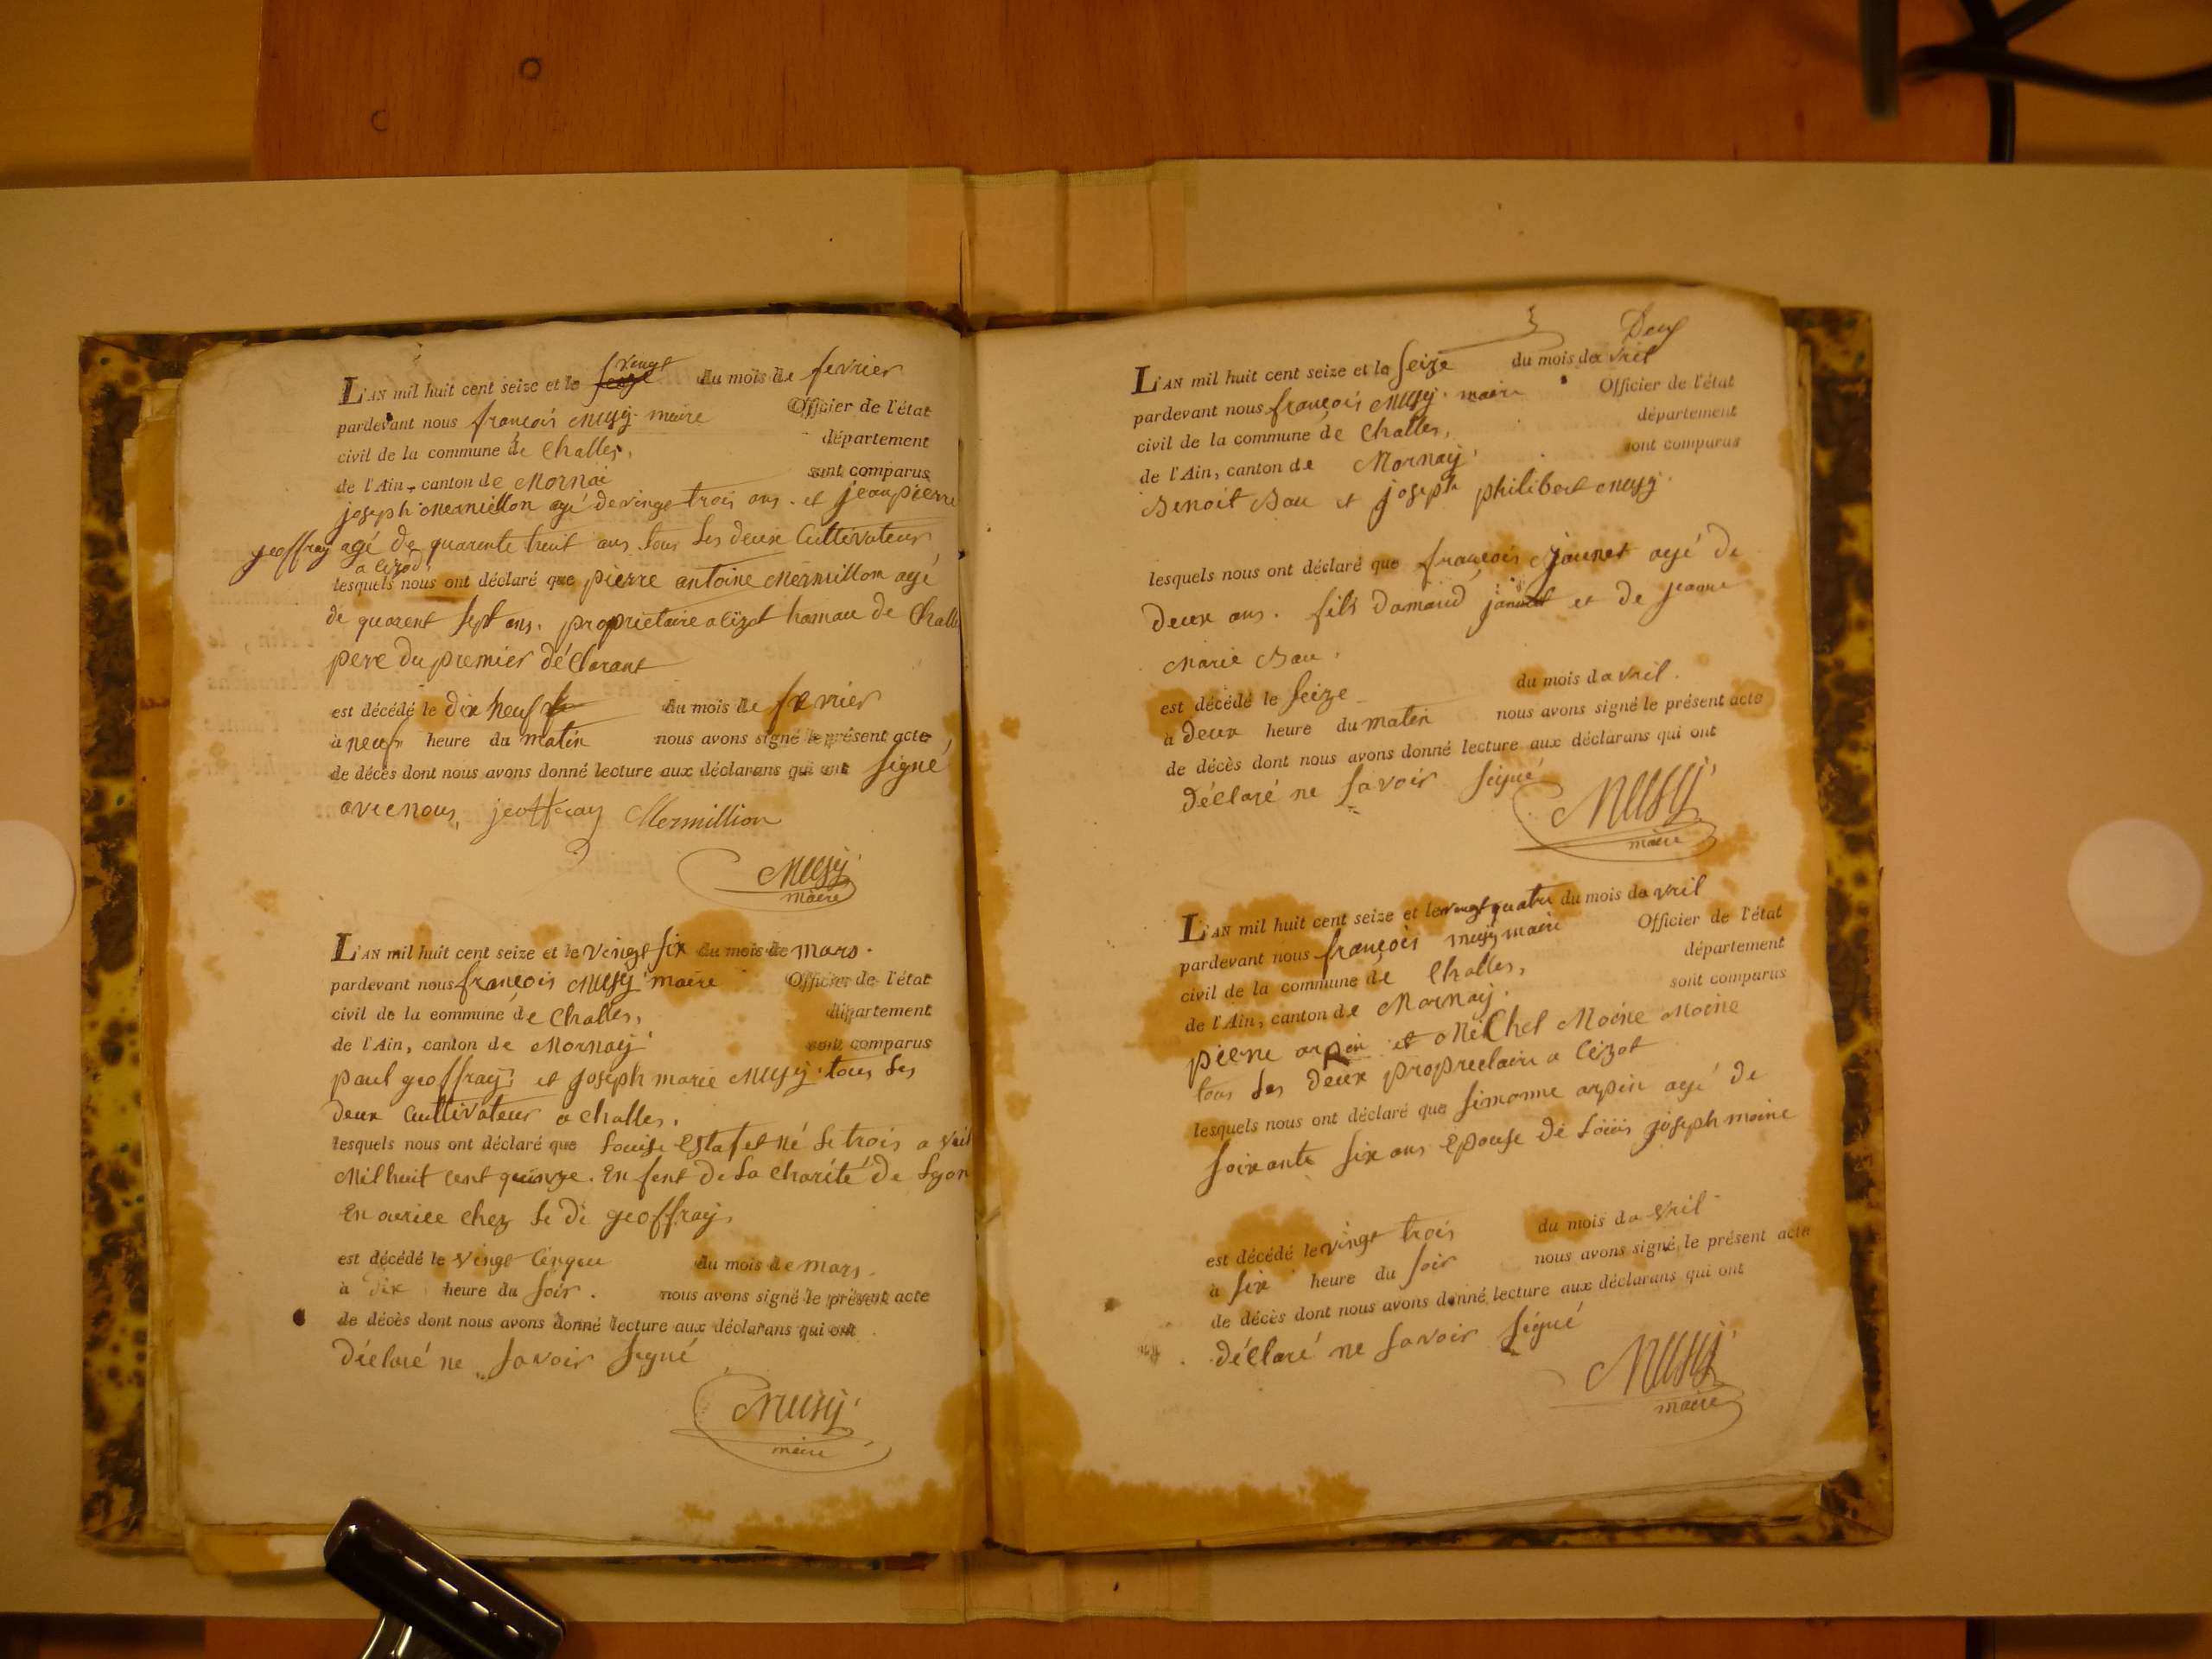 L'AN mil huit cent seize et le vengt du mois de fevrier
pardevant nous françois Musy maire Officier de l'état
civil de la commune de Challes, département
de l'Ain, canton de Mornai sont comparus
joseph Mermillon agé de vingt trois ans. et jean pierre
geoffray agé de quarente huit ans tous les deux Cultivateur
a lizod,
lesquels nous ont déclaré que pierre antoine Mermillon agé
de quarent sept ans. proprietaire a lizot hamau de Challe
pere du premier déClarant
est décédé le dix neuf du mois de fevrier
à neuf heure du matin nous avons signé le présent acte
de décès dont nous avons donné lecture aux déclarans qui ont signé
avec nous, jeoffray Mermillion
Musy
maire
L'AN mil huit cent seize et le vingt six du mois de mars.
pardevant nous françois Musy maire Officier de l'état
civil de la commune de Challes, département
de l'Ain, canton de Mornay sont comparus
paul geoffray et joseph marie Musy tous les
deux Cultivateur a challes.
lesquels nous ont déclaré que Louise Estafet né le trois a vril
Mil huit cent quinze. En fent de la Charité de Lyon
En ourice chez le di geoffray,
est décédé le vingt Cinque du mois de mars.
à dix heure du soir. nous avons signé le présent acte
de décès dont nous avons donné lecture aux déclarans qui ont
déclaré ne savoir signé
Musy
maire
Deux
L'AN mil huit cent seize et le seize du mois da vril
pardevant nous françois Musy. maire Officier de l'état
civil de la commune de Challes, département
de l'Ain, canton de Mornay. sont comparus
Benoit Bau et joseph philibert Musy.
lesquels nous ont déclaré que françois jaunet agé de
deux ans. fils damand et de jeanne
Marie Bau.
est décédé le seize du mois da vril.
à deux heure du matin nous avons signé le présent acte
de décès dont nous avons donné lecture aux déclarans qui ont
déClaré ne savoir signé
Musy
maire
L'AN mil huit cent seize et le vengt quatre du mois da vril
pardevant nous françois musy maire Officier de l'état
civil de la commune de Challes, département
de l'Ain, canton de Mornay. sont comparus
pierre arpin et MiChel Moine Moine
tous les deux propreetaire a lizot
lesquels nous ont déclaré que simonne arpin agé de
soixante six ans Epouse de Loüis joseph moine
est décédé le vingt trois du mois da vril
à six heure du soir nous avons signé le présent acte
de décès dont nous avons donné lecture aux déclarans qui ont
déClaré ne savoir signé
Musy
maire